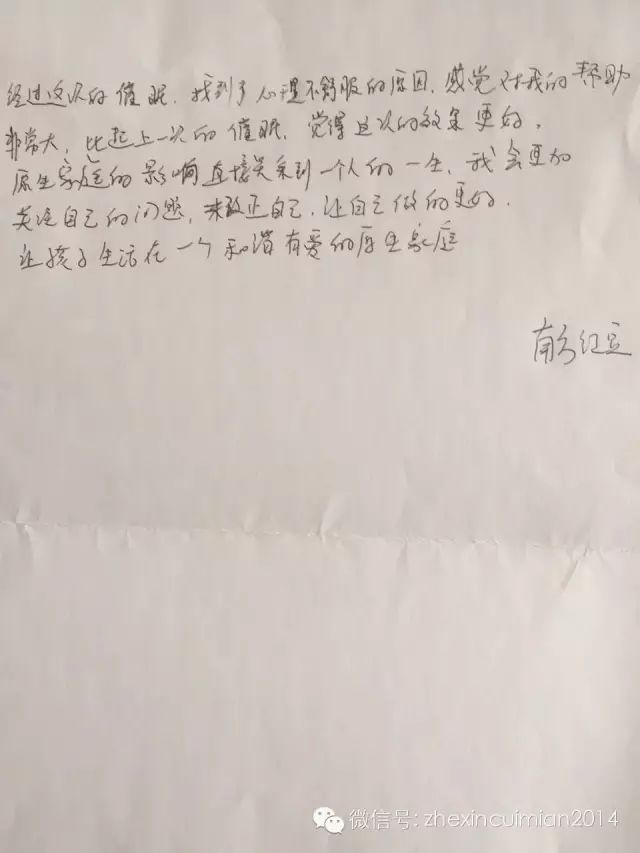 经过这次的催眠，找到了心理不舒服的原因，感觉对我的帮助
非常大，比起上一次的催眠，觉得这次的效果更好，
原生家庭的影响直接关系到一个人的一生，我会更加
关注自己的问题，来改正自己，让自己做的更好，
让孩子生活在一个和谐有爱的原生家庭
南方红豆
微信号: zhexincuimian2014